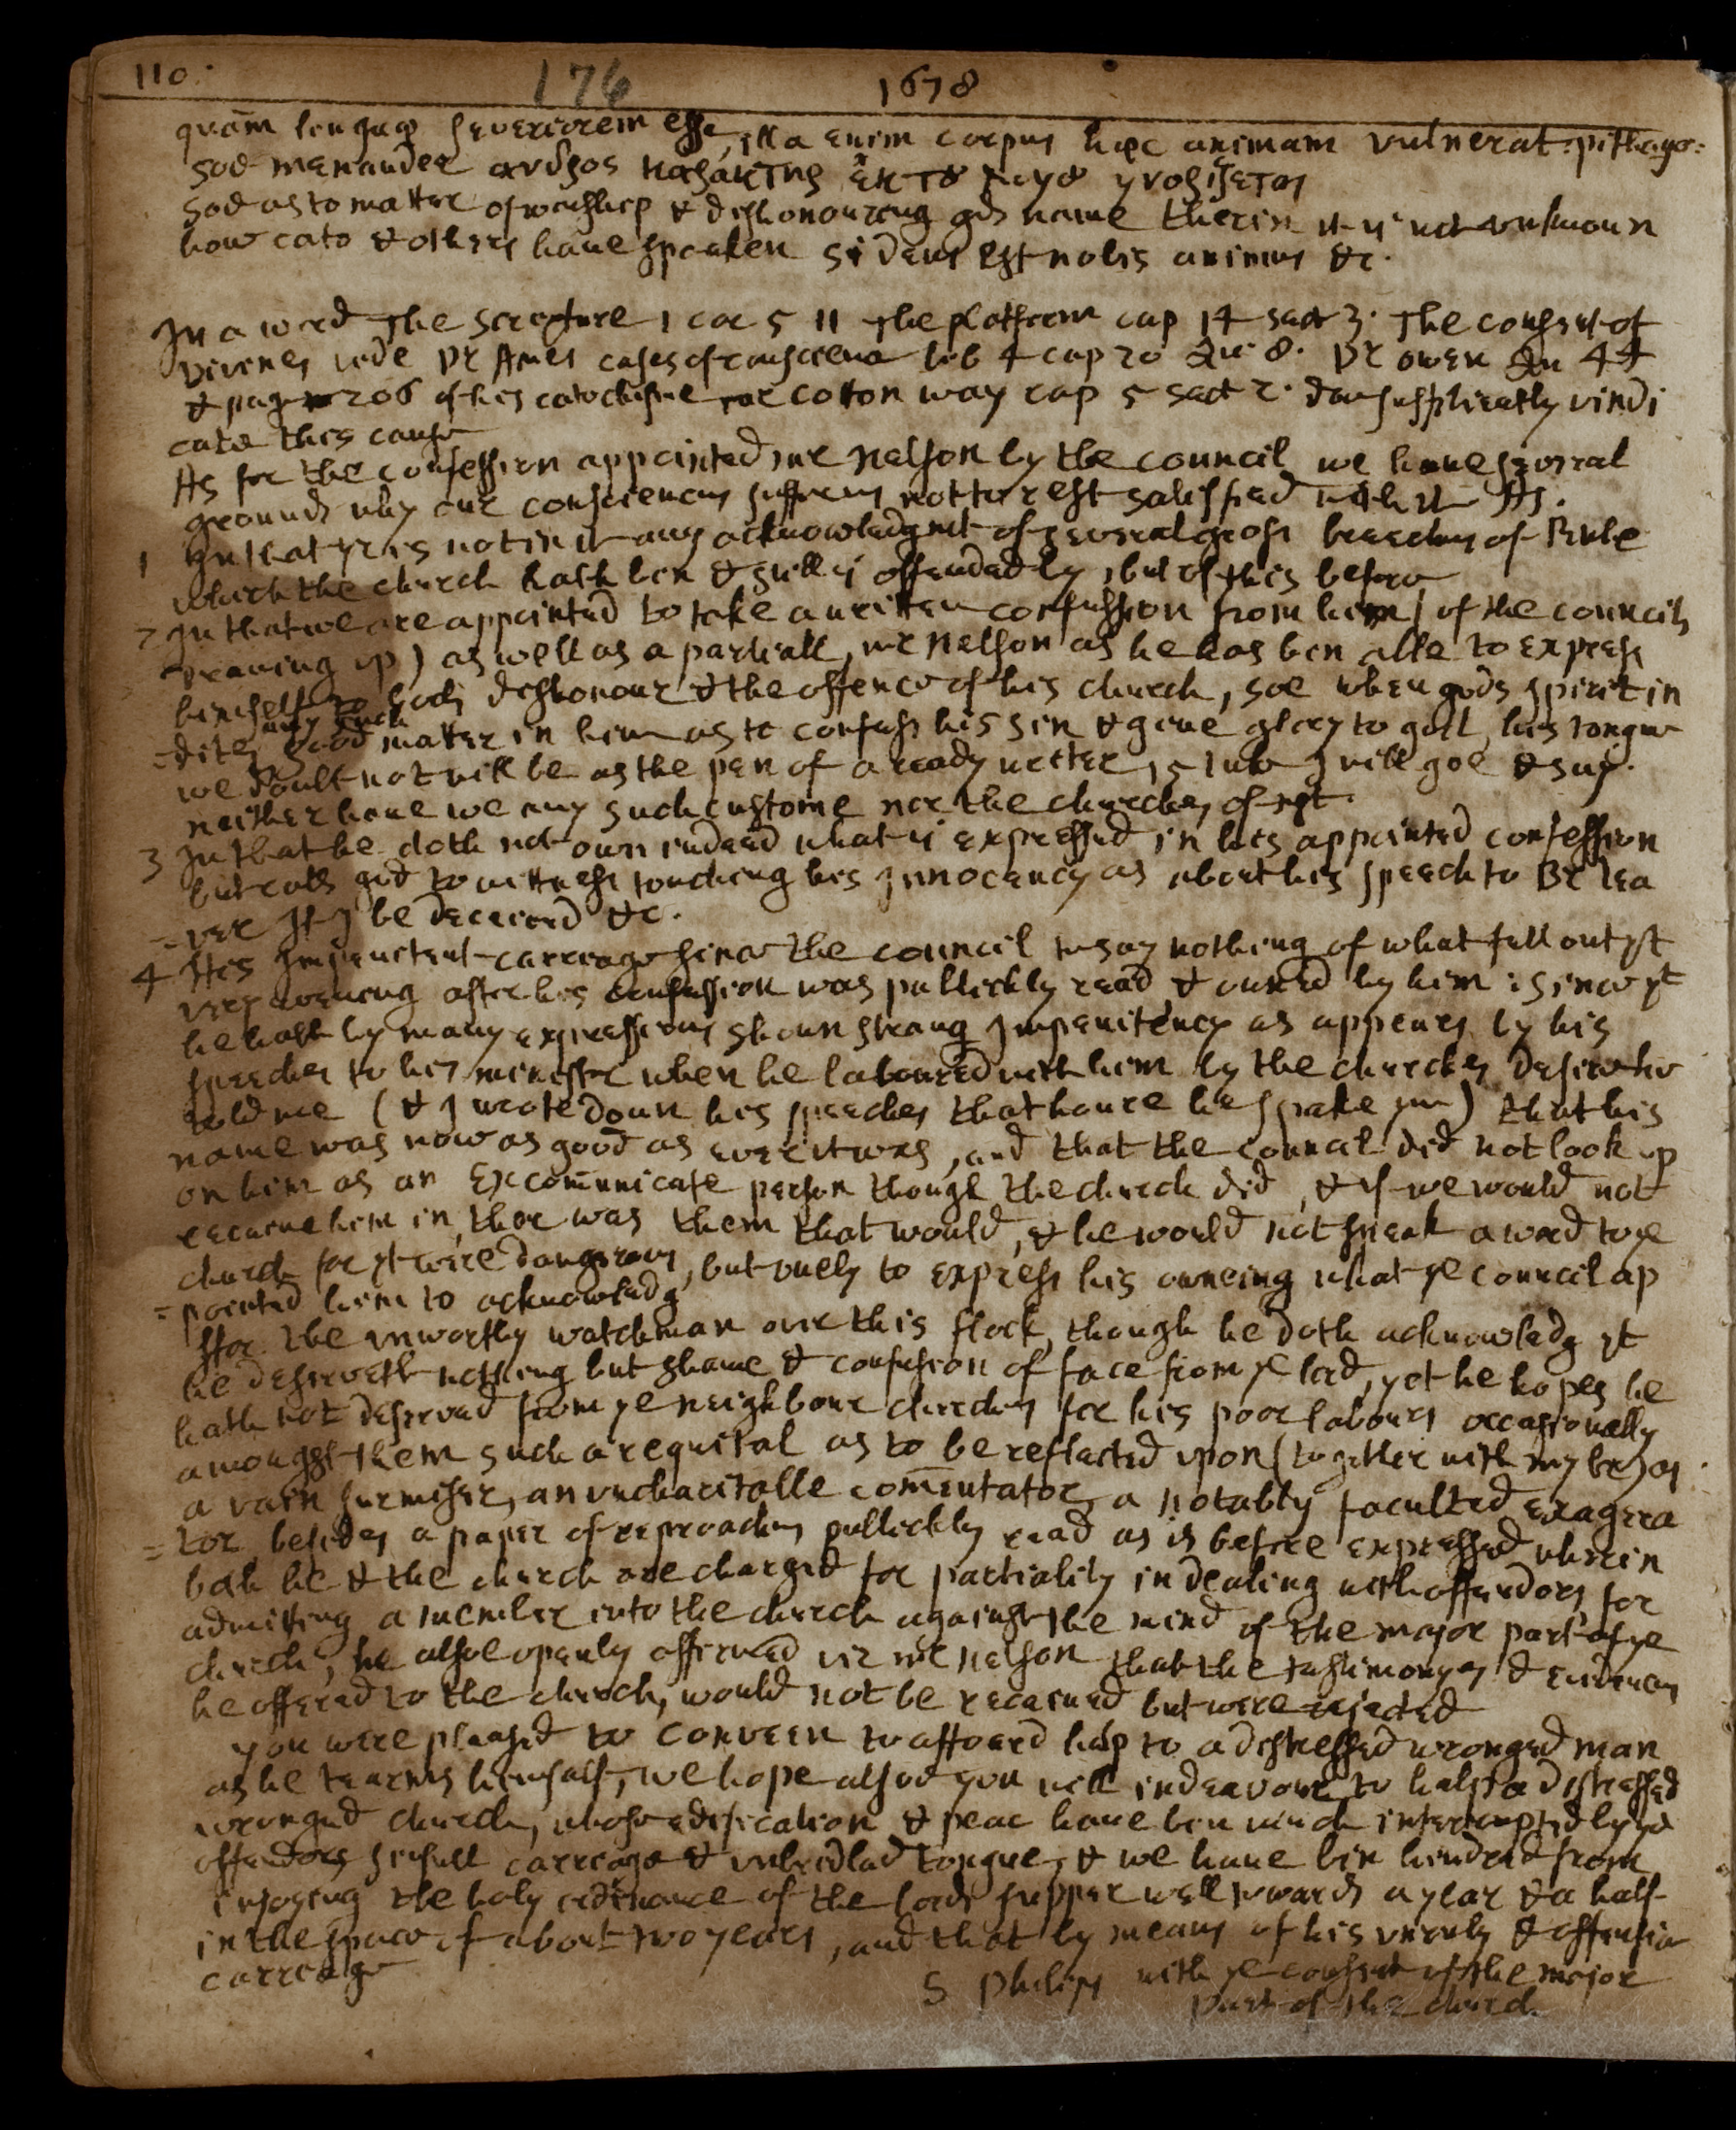 110.
176
1678
quām linguæ severiorem esse, illa enim corpus hæc animam vulnerat: pithago:
soe menander ανδρος χαρακτης ἐκ τȣ λογȣ γνοριζεται
soe as to matter of worship & dishonouring gds name therin it is not unknown
how cato & others have spoaken si deus est nobis animus &c.
In a word The Scripture 1 cor 5 11 The platform cap 14 sect 3. The consent of
Divines vide Dr Ames cases of conscience lib 4 cap 20 Qu 8. Dr owen Qu 44
& pag 206 of his catechisme mr cotton way cap 5 sect 2. doe sufficiently vindi
cate this cause
As for the confession appointed mr Nelson by the council we have several
grounds why our consciences suffers not to rest satisfied with it As.
1 In that yr is not in it any acknowledgmt of several gross breaches of Rule
which the church hath ben & still is offended by, but of this before
2 In that we are appointed to take a written confession from him (of the councils
drawing up) as well as a partiall, mr Nelson as he has ben able to express
himself to gods dishonour & the offence of his church, soe when gods spirit in
=dites any such good matter in him as to confess his sin & give glory to god, his tongue
we doubt not will be as the pen of a ready writer, 15 luke I will goe & say.
neither have we any such custome nor the churches of xst.
3 In that he doth not own indeed what is expressed in his appointed confession
but calls god to wittness touching his Innocency as about his speech to Br Lea
=ver If I be deceived &c.
4 His Impenitent carreage since the council to say nothing of what fell out yt
very evening after his confession was publickly read & owned by him: since yt
he hath by many expressions shown strang Impenitency as appears by his
speeches to his minister when he laboured with him by the churches desire who
told me (& I wrote down his speeches that houre he spake ym) that his
name was now as good as ever it was, and that the council did not look up
on him as an Excom̄unicate person though the church did, & if we would not
receive him in, ther was them that would, & he would not speak a word to ye
church for yt were dangerous, but only to express his owneing what ye council ap
=pointed him to acknowledg
ffor the unworthy watchman over this flock, though he doth acknowledg yt
he deserveth nothing but shame & confusion of face from ye lord, yet he hopes he
hath not deserved from ye neighbour churches for his poor labours occasionally
amongst them such a requital as to be reflected upon (together with my br) as
a vain surmiser, an uncharitable com̄entator, a notably faculted exagera
=tor besides a paper of reproaches publickly read as is before expressed wherin
both he & the church are charged for partiality in dealing with offendors for
admitting a member into the church against the mind of the major part of ye
church, he alsoe openly affirmed viz mr Nelson that the testimonyes & evidences
he offered to the church, would not be received but were rejected
you were pleased to conveen to affoard help to a distressed wronged man
as he tearms himself, we hope alsoe you will indeavour to help a distressed
wronged church, whose edification & peac have ben much interrupted by ye
offendors sinfull carreage & unbridled tongue, & we have bin hindred from
injoying the holy ordinance of the lords supper well towards a year & a half
in the space of about two years, and that by means of his unruly & offensive
carreage
S Philips with ye consent of the major
part of the church